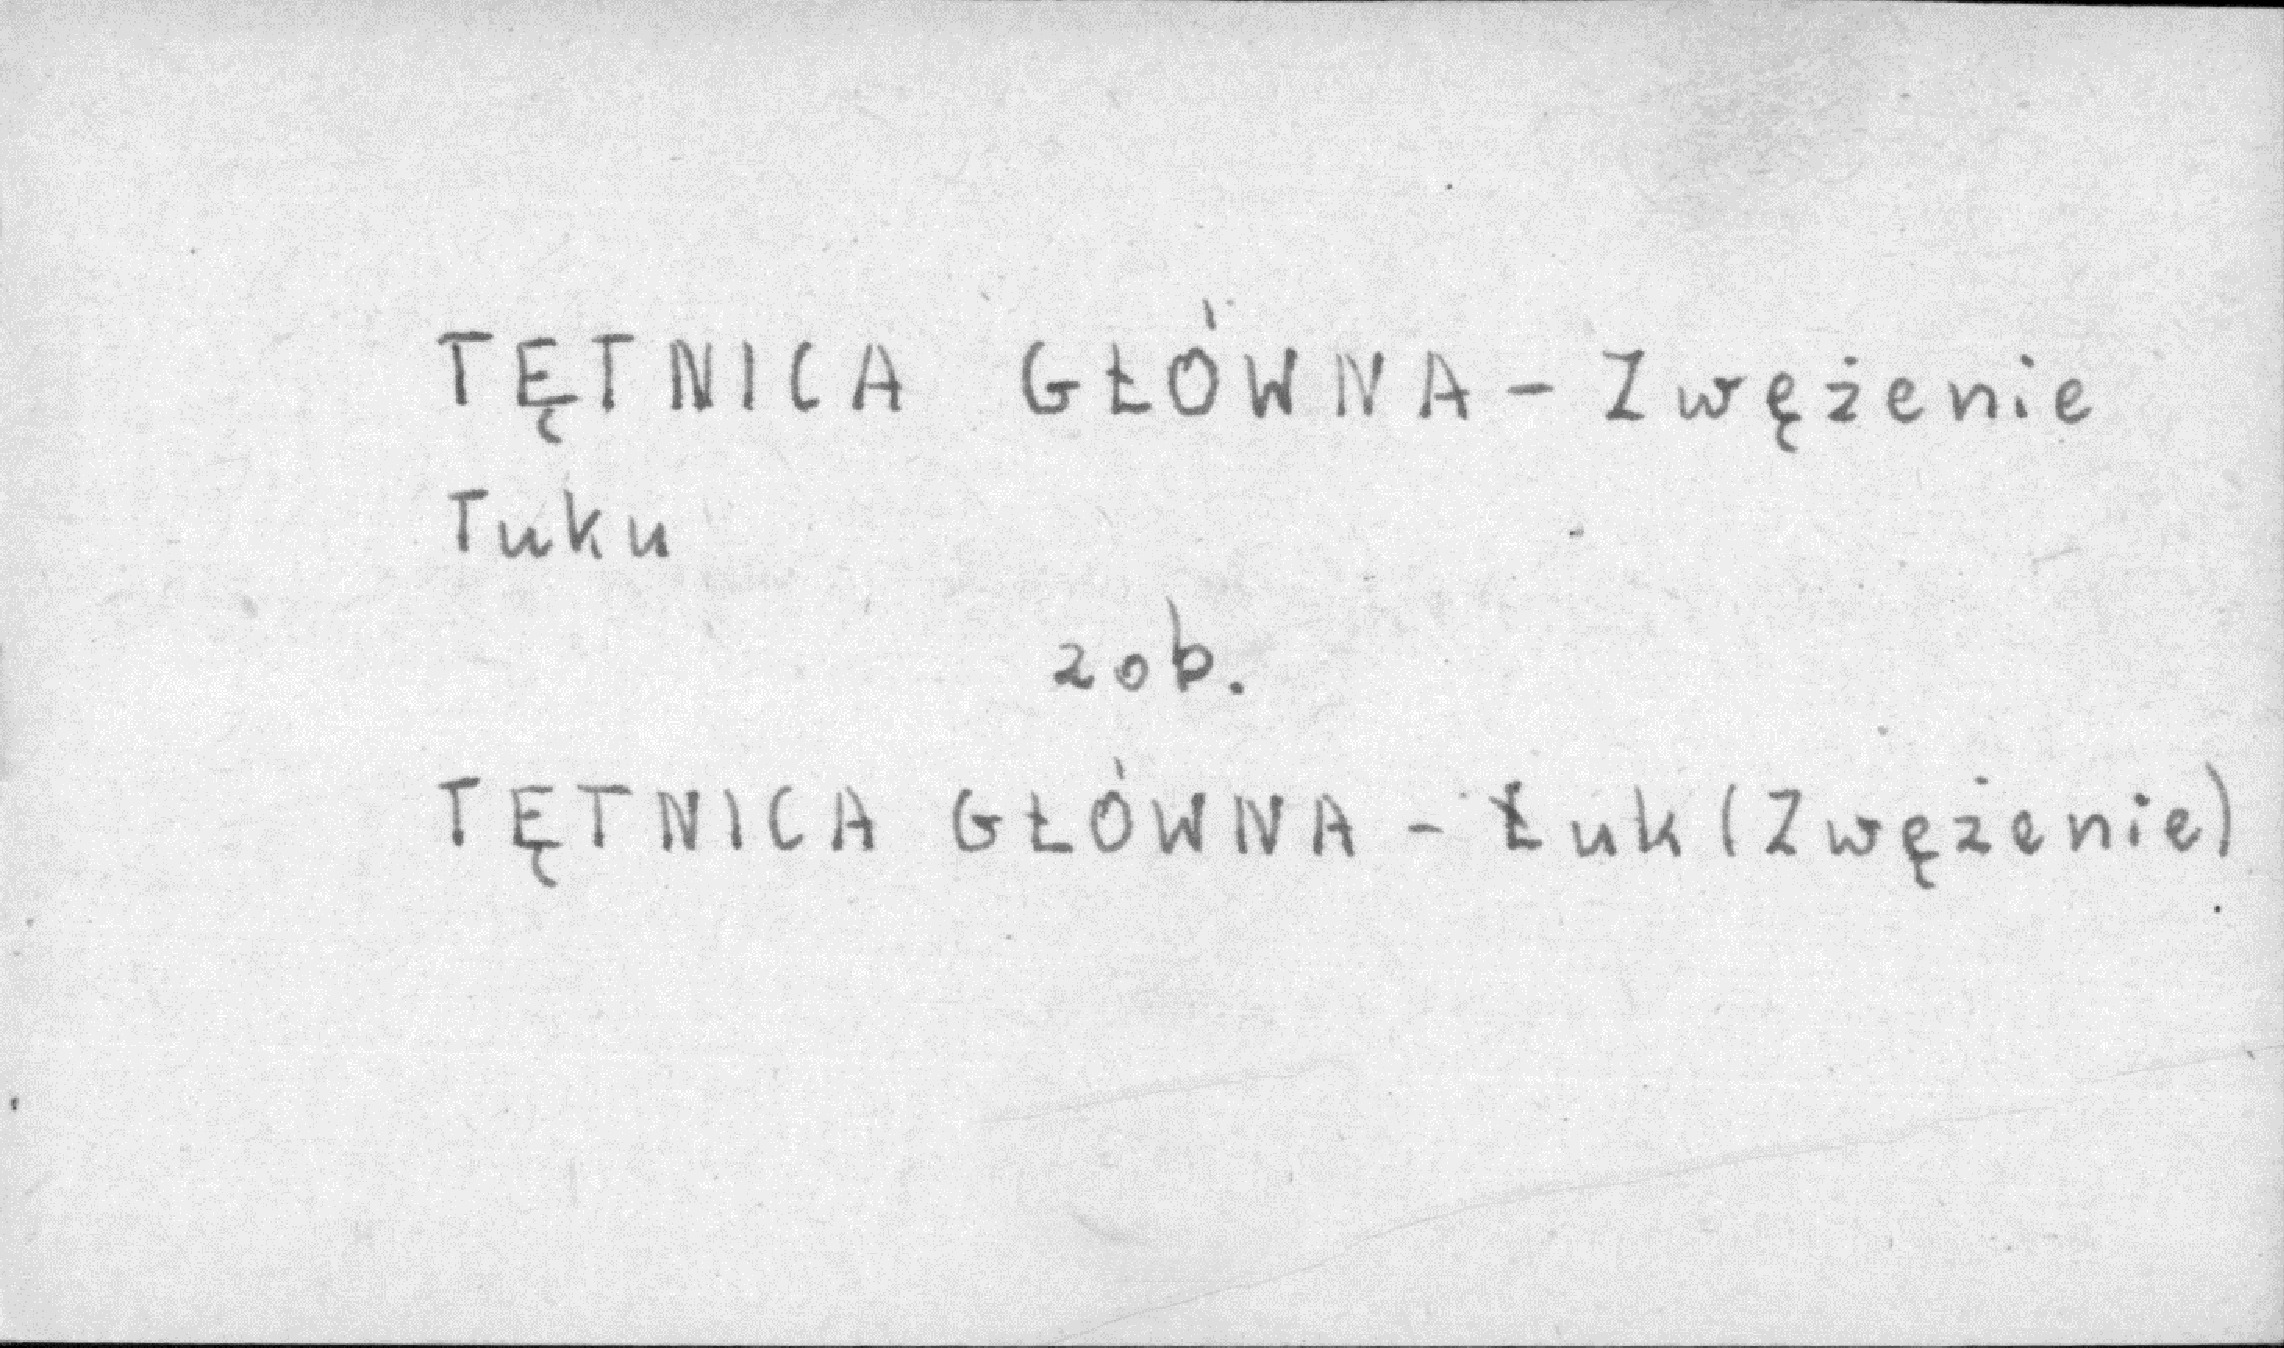 TĘTNICA GŁÓWNA - Zwężenie
Tuku
zob.
TĘTNICA GŁÓWNA - Łuk (Zwężenie)